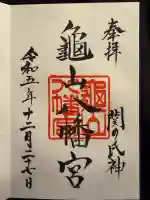 奉拝
関の氏神
龜山八幡宮
令和五年十二月二十七日